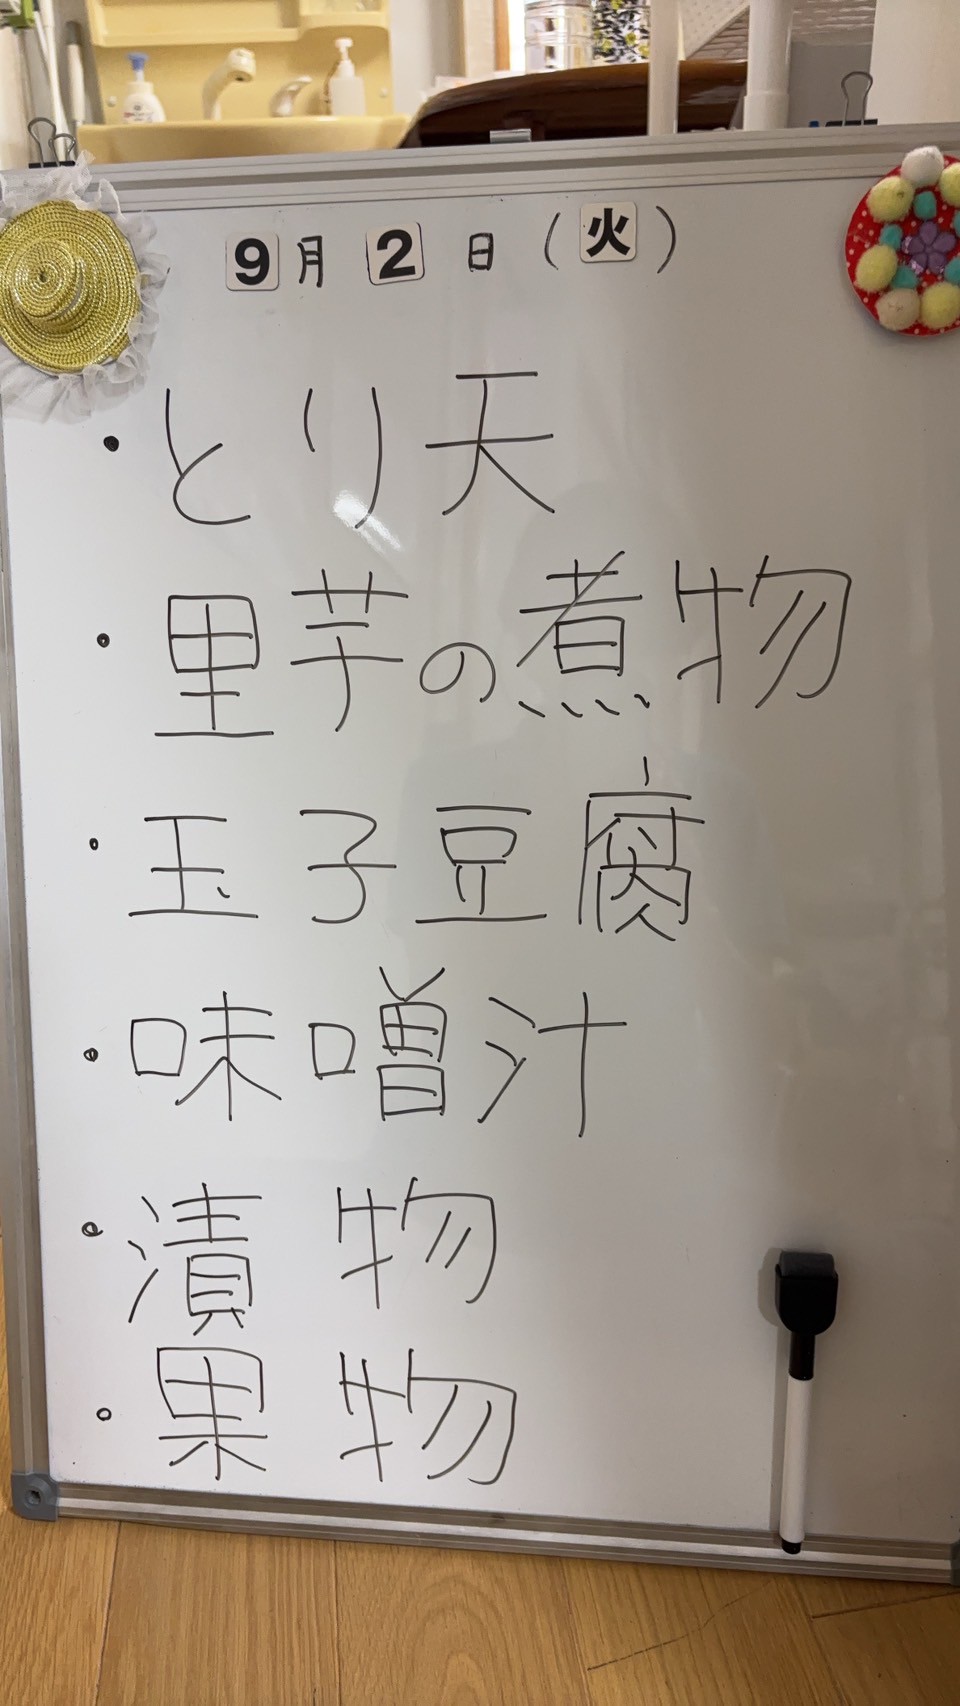 9月2日(火)
・とり天
・里芋の煮物
・玉子豆腐
・味噌汁
・漬物
・果物